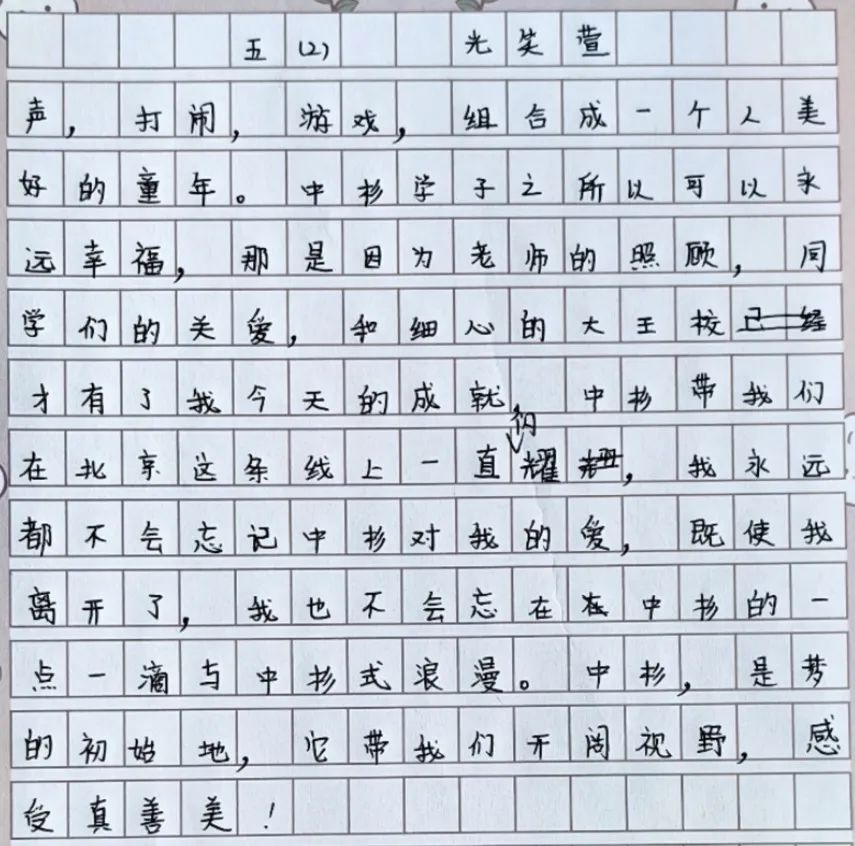 五(2) 光笑萱
声，打闹，游戏，组合成一个人美
好的童年。中杉学子之所以可以永
远幸福，那是因为老师的照顾，同
学们的关爱，和细心的大王校
才有了我今天的成就，中杉带我们
在北京这条线上一直闪耀，我永远
都不会忘记中杉对我的爱，既使我
离开了，我也不会忘在在中杉的一
点一滴与中杉式浪漫。中杉，是梦
的初始地，它带我们开阔视野，感
受真善美！